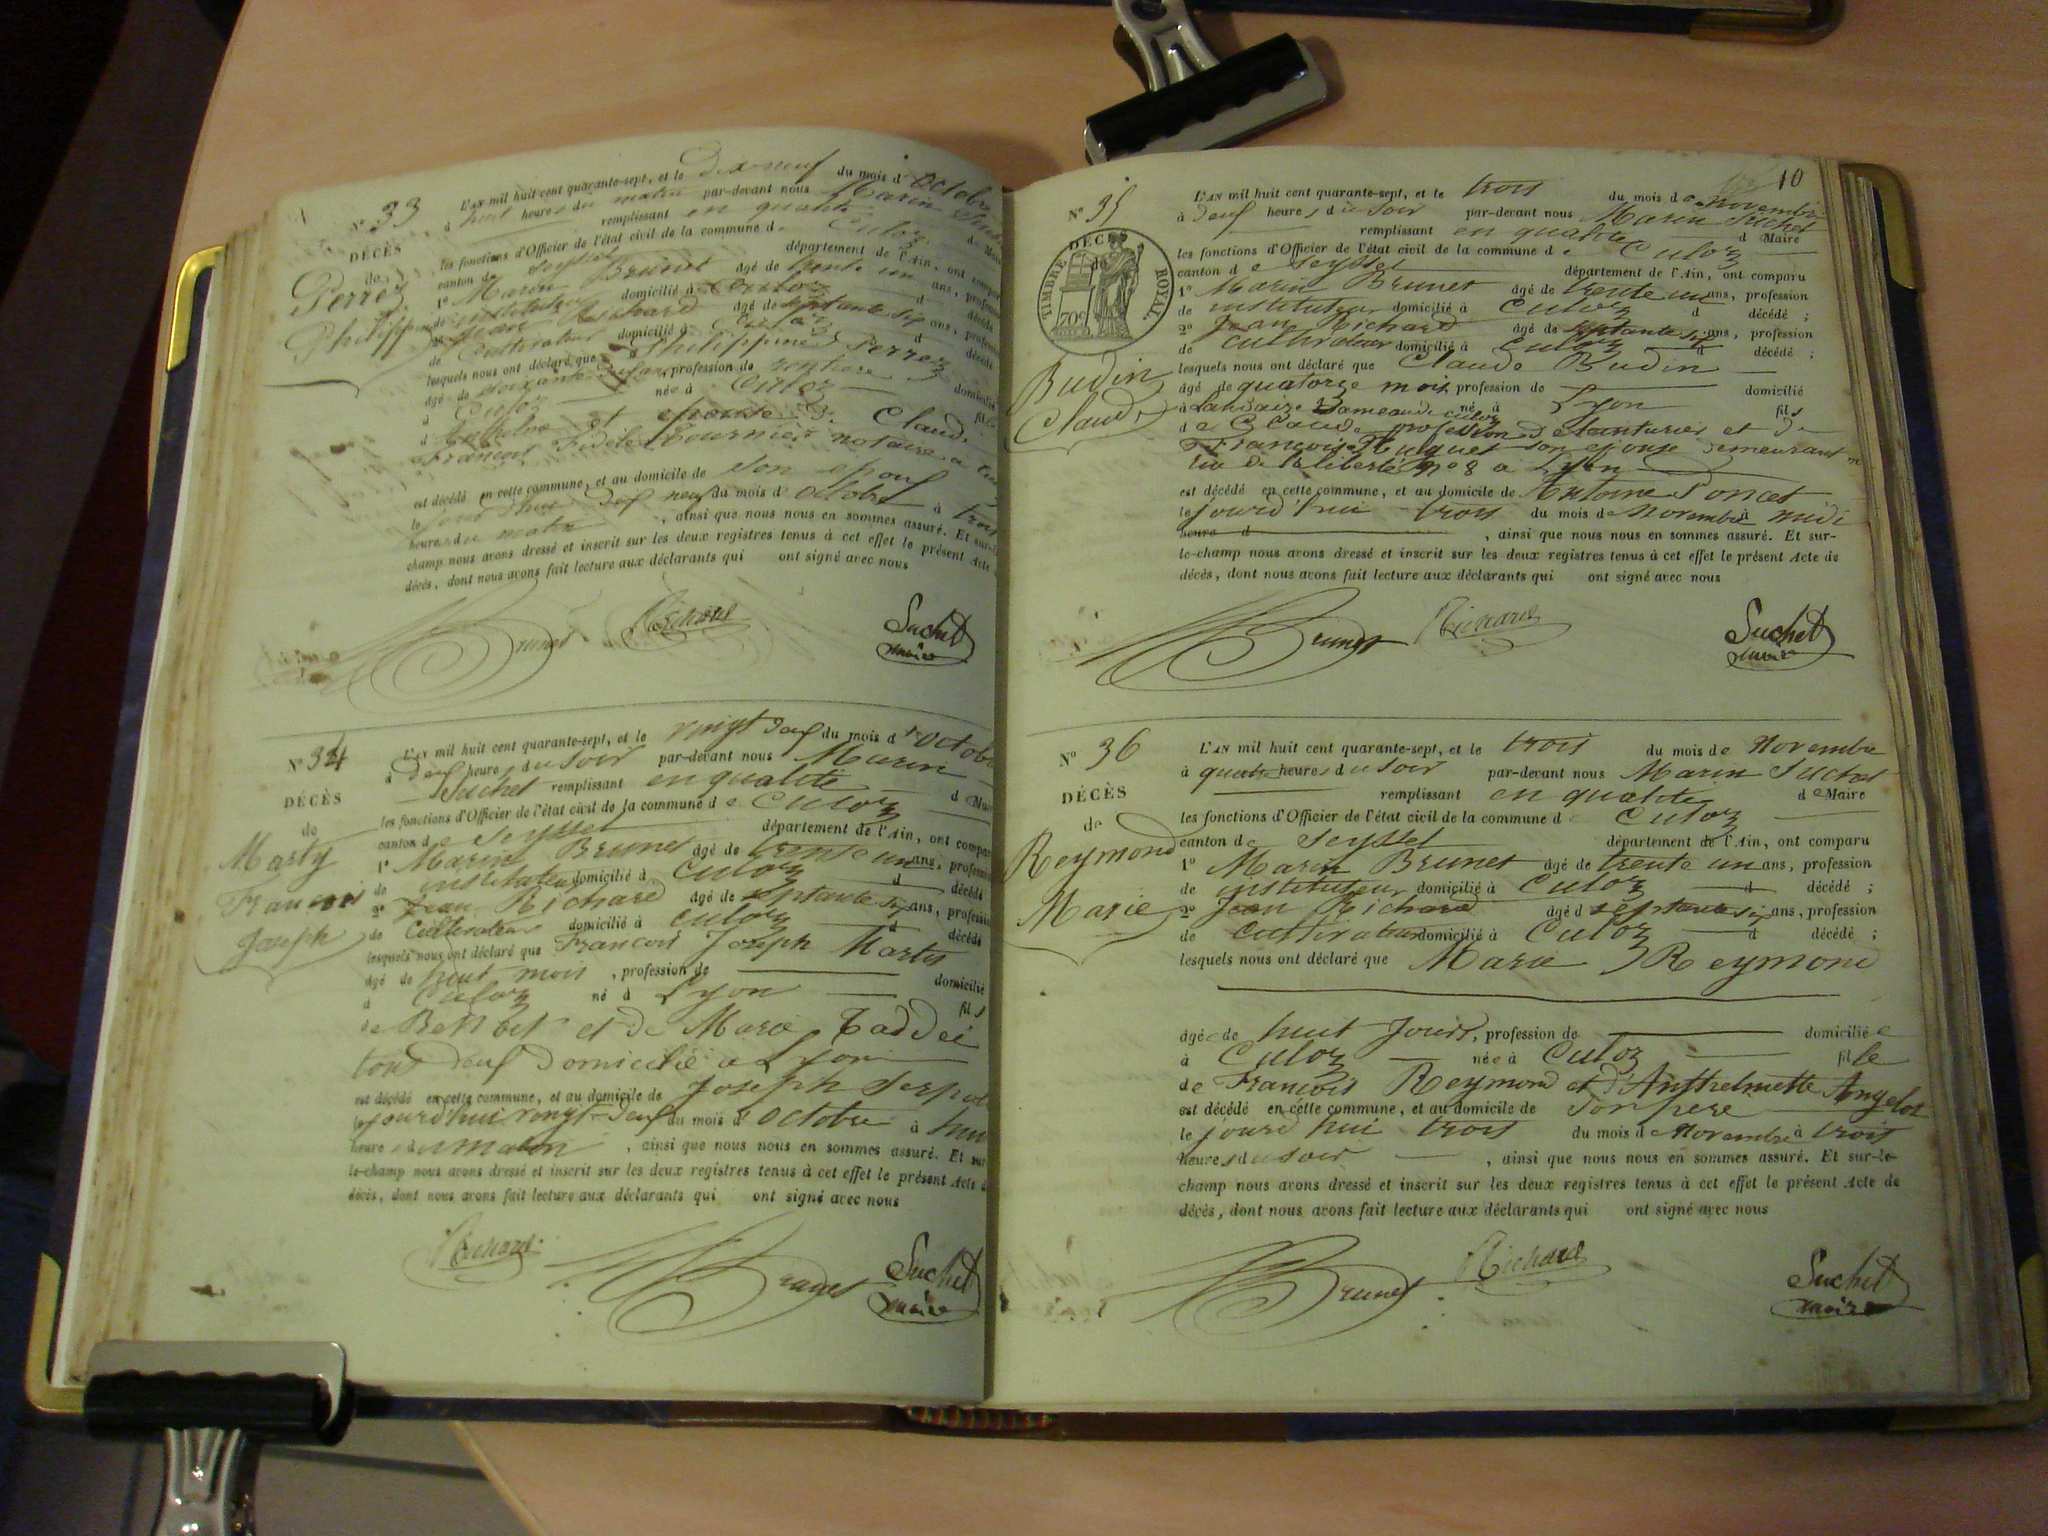 N° 33
DÉCÈS
de
Perrez
Philippine
L'AN mil huit cent quarante-sept, et le dix neuf du mois d'octobre
à huit heures du matin par-devant nous Marin Suchet
remplissant en qualité d Maire
les fonctions d'Officier de l'état civil de la commune de Culoz
canton de Seyssel département de l'Ain, ont comparu
1° Marin Brunet âgé de trente un ans, profession
de instituteur domicilié à Culoz d décédé
2° Jean Richard âgé de septante six ans, profession
de Cultivateur domicilié à Culoz d décédé
lesquels nous ont déclaré que Philippine Perrez
âgé de soixante ans, profession de rentiere domicilié
à Culoz née à Culoz fille
d'Anthelme et épouse de Claude
François Fidèle Tournier notaire à
est décédé en cette commune, et au domicile de son epoux
le jourd'hui dix neuf du mois d'octobre à trois
heures du matin , ainsi que nous nous en sommes assuré. Et sur-le-
champ nous avons dressé et inscrit sur les deux registres tenus à cet effet le présent Acte
décès, dont nous avons fait lecture aux déclarants qui ont signé avec nous
Brunet Richard Suchet
maire
N° 34
DÉCÈS
de
Marty
François
Joseph
L'AN mil huit cent quarante-sept, et le vingt deux du mois d'octobre
à deux heures du soir par-devant nous Marin
Suchet remplissant en qualité d Maire
les fonctions d'Officier de l'état civil de la commune de Culoz
canton de Seyssel département de l'Ain, ont comparu
1° Marin Brunet âgé de trente un ans, profession
de instituteur domicilié à Culoz d décédé
2° Jean Richard âgé de septante six ans, profession
de Cultivateur domicilié à Culoz d décédé
lesquels nous ont déclaré que François Joseph Martis
âgé de huit mois , profession de domicilié
à Culoz né à Lyon fils
de Benoit et de Marie Taddei
tous deux domicilié a Lyon
est décédé en cette commune, et au domicile de Joseph Serpol
le jourd'hui vingt-deux du mois d'octobre à huit
heures du matin , ainsi que nous nous en sommes assuré. Et sur-
le-champ nous avons dressé et inscrit sur les deux registres tenus à cet effet le présent Acte de
décès, dont nous avons fait lecture aux déclarants qui ont signé avec nous
Richard Brunet Suchet
maire
10
N° 35
DÉCÈS
de
TIMBRE ROYAL.
70c
Budin
Claude
L'AN mil huit cent quarante-sept, et le trois du mois de Novembre
à deux heures du soir par-devant nous Marin Suchet
remplissant en qualité d Maire
les fonctions d'Officier de l'état civil de la commune de Culoz
canton de Seyssel département de l'Ain, ont comparu
1° Marin Brunet âgé de trente un ans, profession
de instituteur domicilié à Culoz d décédé ;
2° Jean Richard âgé de septante six ans, profession
de cultivateur domicilié à Culoz d décédé ;
lesquels nous ont déclaré que Claude Budin
âgé de quatorze mois profession de domicilié
à Landaize hameau de Culoz né à Lyon fils
de Claude profession de et de
Françoise Huguet son epouse demeurant
rue de la liberté N° 8 a Lyon
est décédé en cette commune, et au domicile de Antoine Poncet
le jourd'hui trois du mois de Novembre à midi
heure d , ainsi que nous nous en sommes assuré. Et sur-
le-champ nous avons dressé et inscrit sur les deux registres tenus à cet effet le présent Acte de
décès, dont nous avons fait lecture aux déclarants qui ont signé avec nous
Brunet Richard Suchet
maire
N° 36
DÉCÈS
de
Reymond
Marie
L'AN mil huit cent quarante-sept, et le trois du mois de Novembre
à quatre heures du soir par-devant nous Marin Suchet
remplissant en qualité de Maire
les fonctions d'Officier de l'état civil de la commune de Culoz
canton de Seyssel département de l'Ain, ont comparu
1° Marin Brunet âgé de trente un ans, profession
de instituteur domicilié à Culoz d décédé ;
2° Jean Richard âgé d septante six ans, profession
de cultivateur domicilié à Culoz d décédé ;
lesquels nous ont déclaré que Marie Reymond
âgée de huit jours, profession de domiciliée
à Culoz née à Culoz fille
de François Reymond et d'Anthelmette Angelot
est décédé en cette commune, et au domicile de son pere
le jourd'hui trois du mois de Novembre à trois
heures du soir , ainsi que nous nous en sommes assuré. Et sur-le-
champ nous avons dressé et inscrit sur les deux registres tenus à cet effet le présent Acte de
décès, dont nous avons fait lecture aux déclarants qui ont signé avec nous
Brunet Richard Suchet
maire